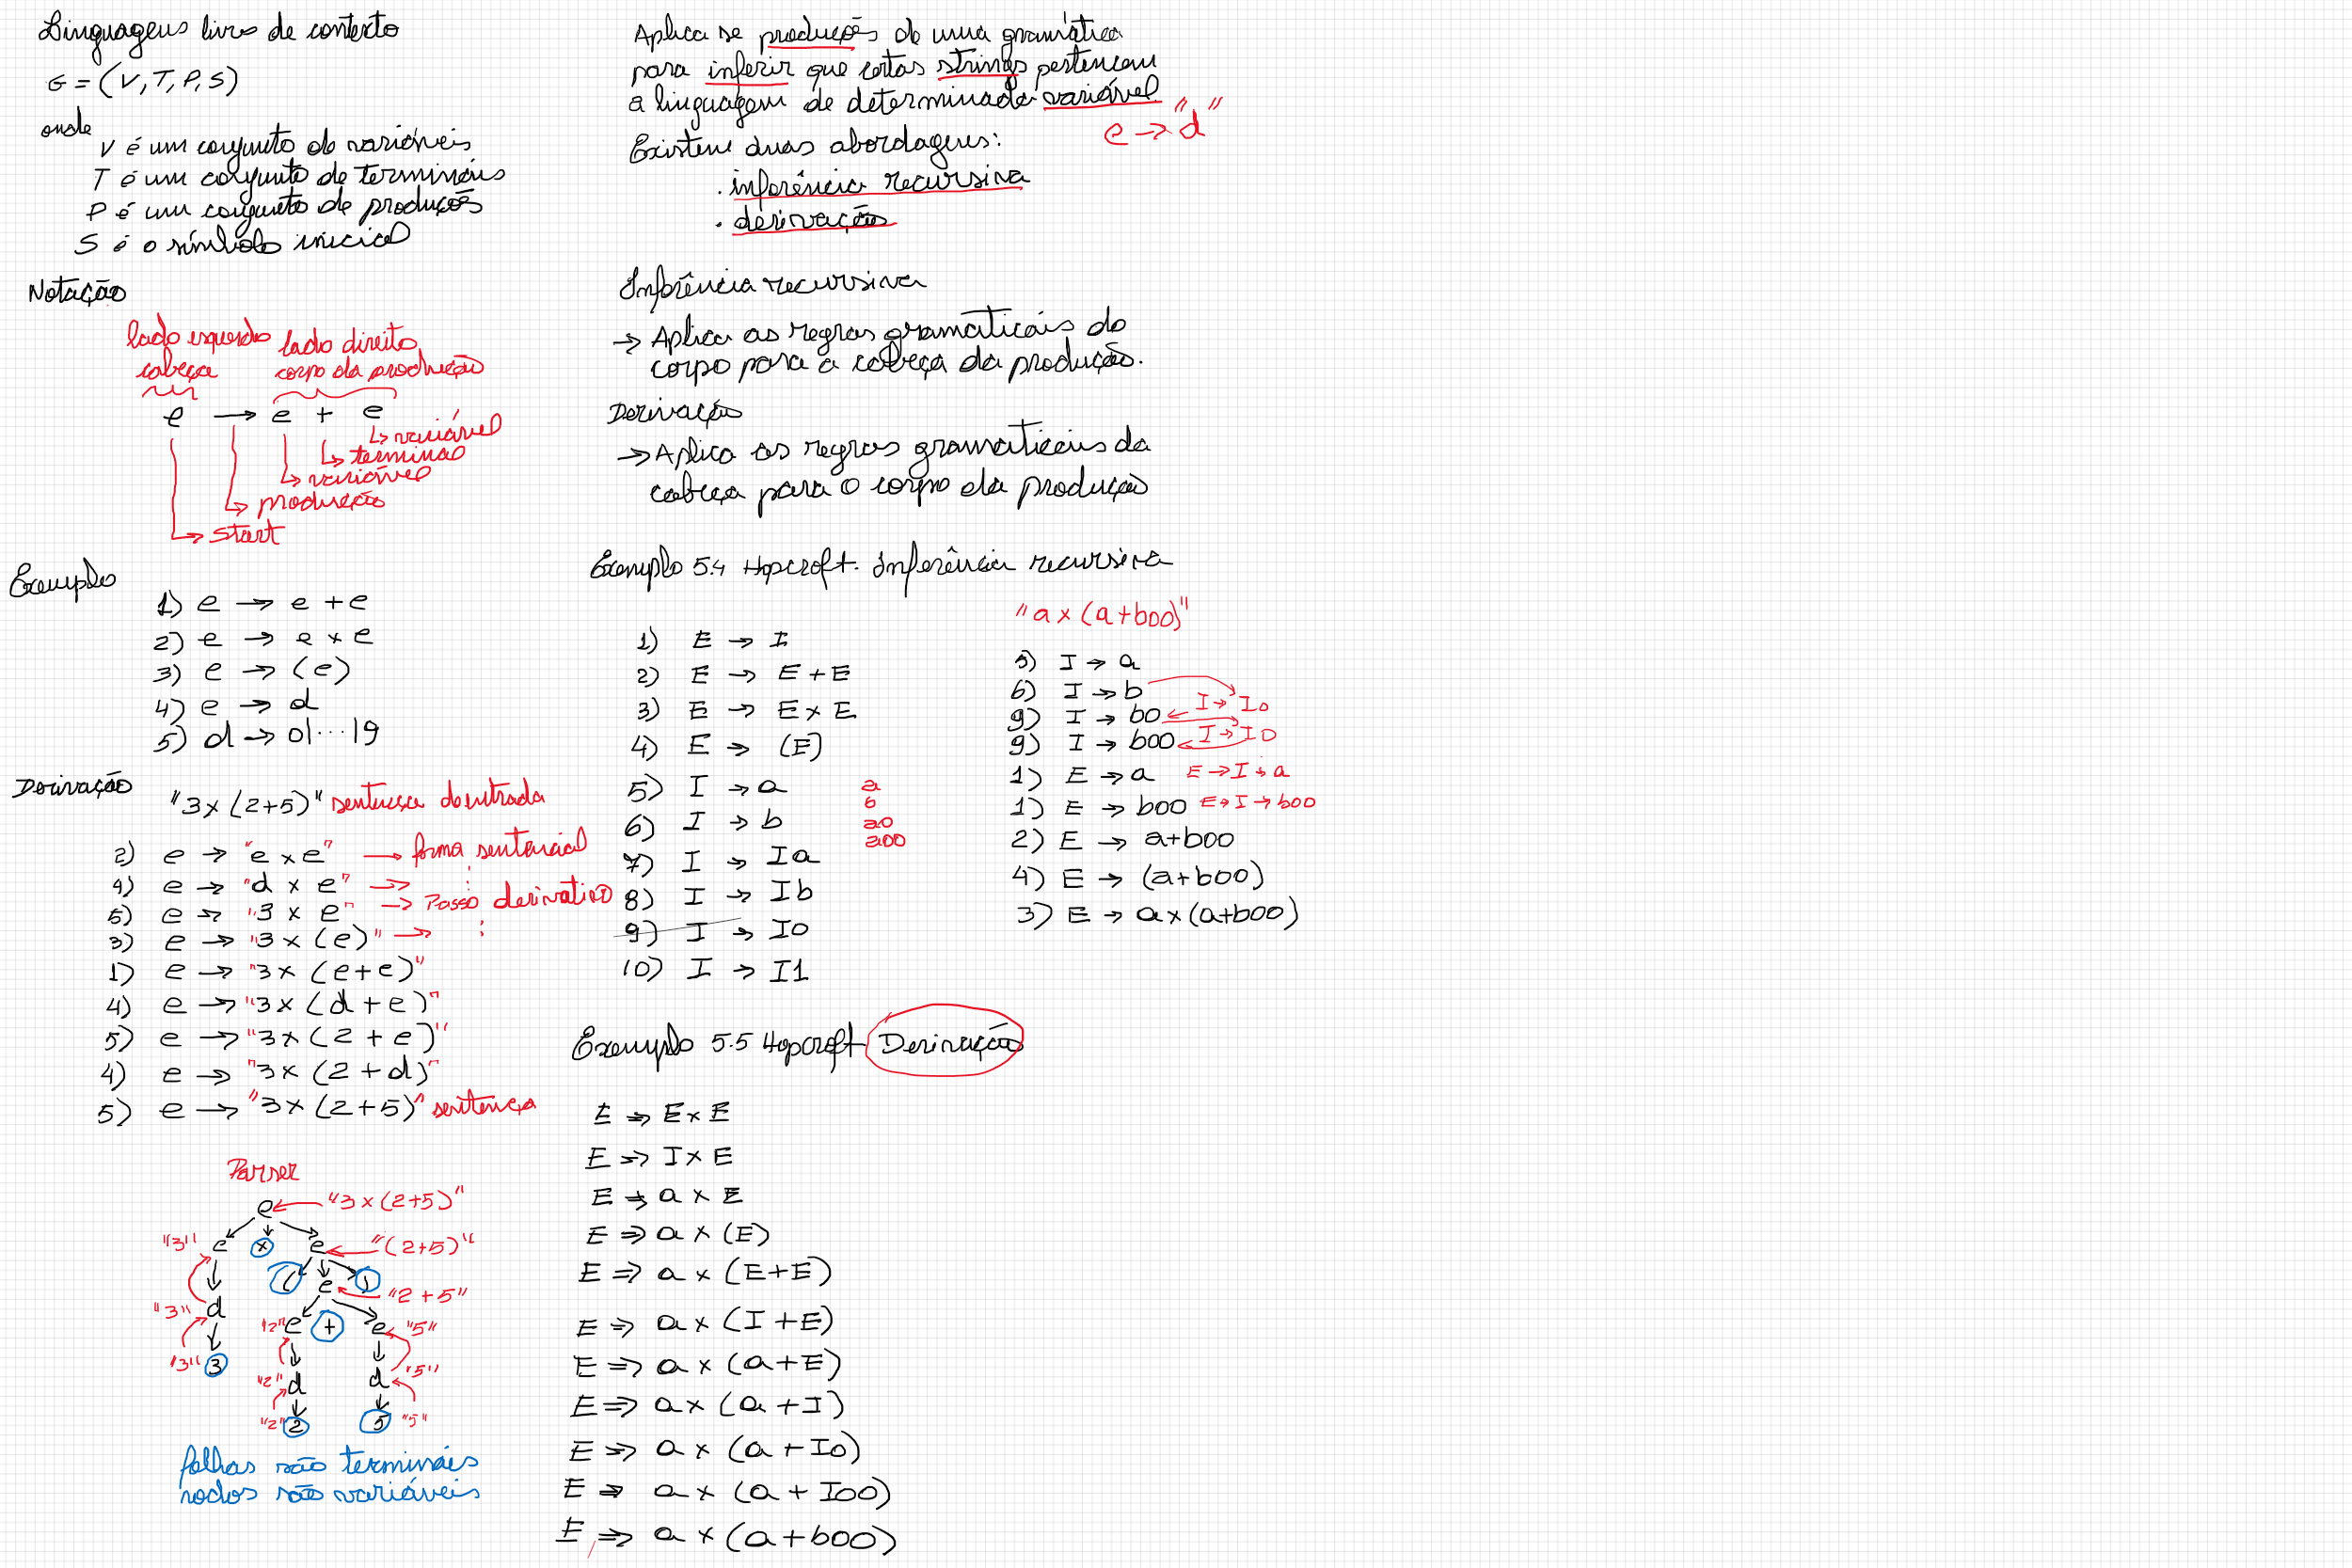 Linguagens livre de contexto
G = (V, T, P, S)
onde
V é um conjunto de variáveis
T é um conjunto de terminais
P é um conjunto de produções
S é o símbolo inicial
Notação
lado esquerdo lado direito
cabeça corpo da produção
e → e + e
↳ variável
↳ terminal
↳ variável
↳ produção
↳ start
Exemplo
1) e → e + e
2) e → e × e
3) e → (e)
4) e → d
5) d → 0|...|9
Derivação
"3×(2+5)" sentença de entrada
2) e → "e × e" → forma sentencial
4) e → "d × e" → :
5) e → "3 × e" → Passo derivativo
3) e → "3 × (e)" → :
1) e → "3 × (e+e)"
4) e → "3 × (d + e)"
5) e → "3 × (2 + e)"
4) e → "3 × (2 + d)"
5) e → "3 × (2+5)" sentença
Parser
e ← "3 × (2+5)"
"3" e × e ← "(2+5)"
( e ) ← "2 + 5"
"3" d "2" e + e "5"
"3" 3 "2" d d "5"
"2" 2 5 "5"
folhas são terminais
nodos são variáveis
Aplica se produções de uma gramática
para inferir que certas strings pertencem
a linguagem de determinada variável
e → "d"
Existem duas abordagens:
. inferência recursiva
. derivação
Inferência recursiva
→ Aplica as regras gramaticais do
corpo para a cabeça da produção.
Derivação
→ Aplica as regras gramaticais da
cabeça para o corpo da produção
Exemplo 5.4 Hopcroft. Inferência recursiva
1) E → I
2) E → E + E
3) E → E × E
4) E → (E)
5) I → a
6) I → b
7) I → Ia
8) I → Ib
9) I → I0
10) I → I1
a
b
a0
a00
"a × (a+b00)"
5) I → a
6) I → b
9) I → b0 I → I0
9) I → b00 I → I0
1) E → a E → I → a
1) E → b00 E → I → b00
2) E → a+b00
4) E → (a+b00)
3) E → a×(a+b00)
Exemplo 5.5 Hopcroft Derivação
E ⇒ E × E
E ⇒ I × E
E ⇒ a × E
E ⇒ a × (E)
E ⇒ a × (E+E)
E ⇒ a × (I + E)
E ⇒ a × (a+E)
E ⇒ a × (a + I)
E ⇒ a × (a + I0)
E ⇒ a × (a + I00)
E ⇒ a × (a + b00)